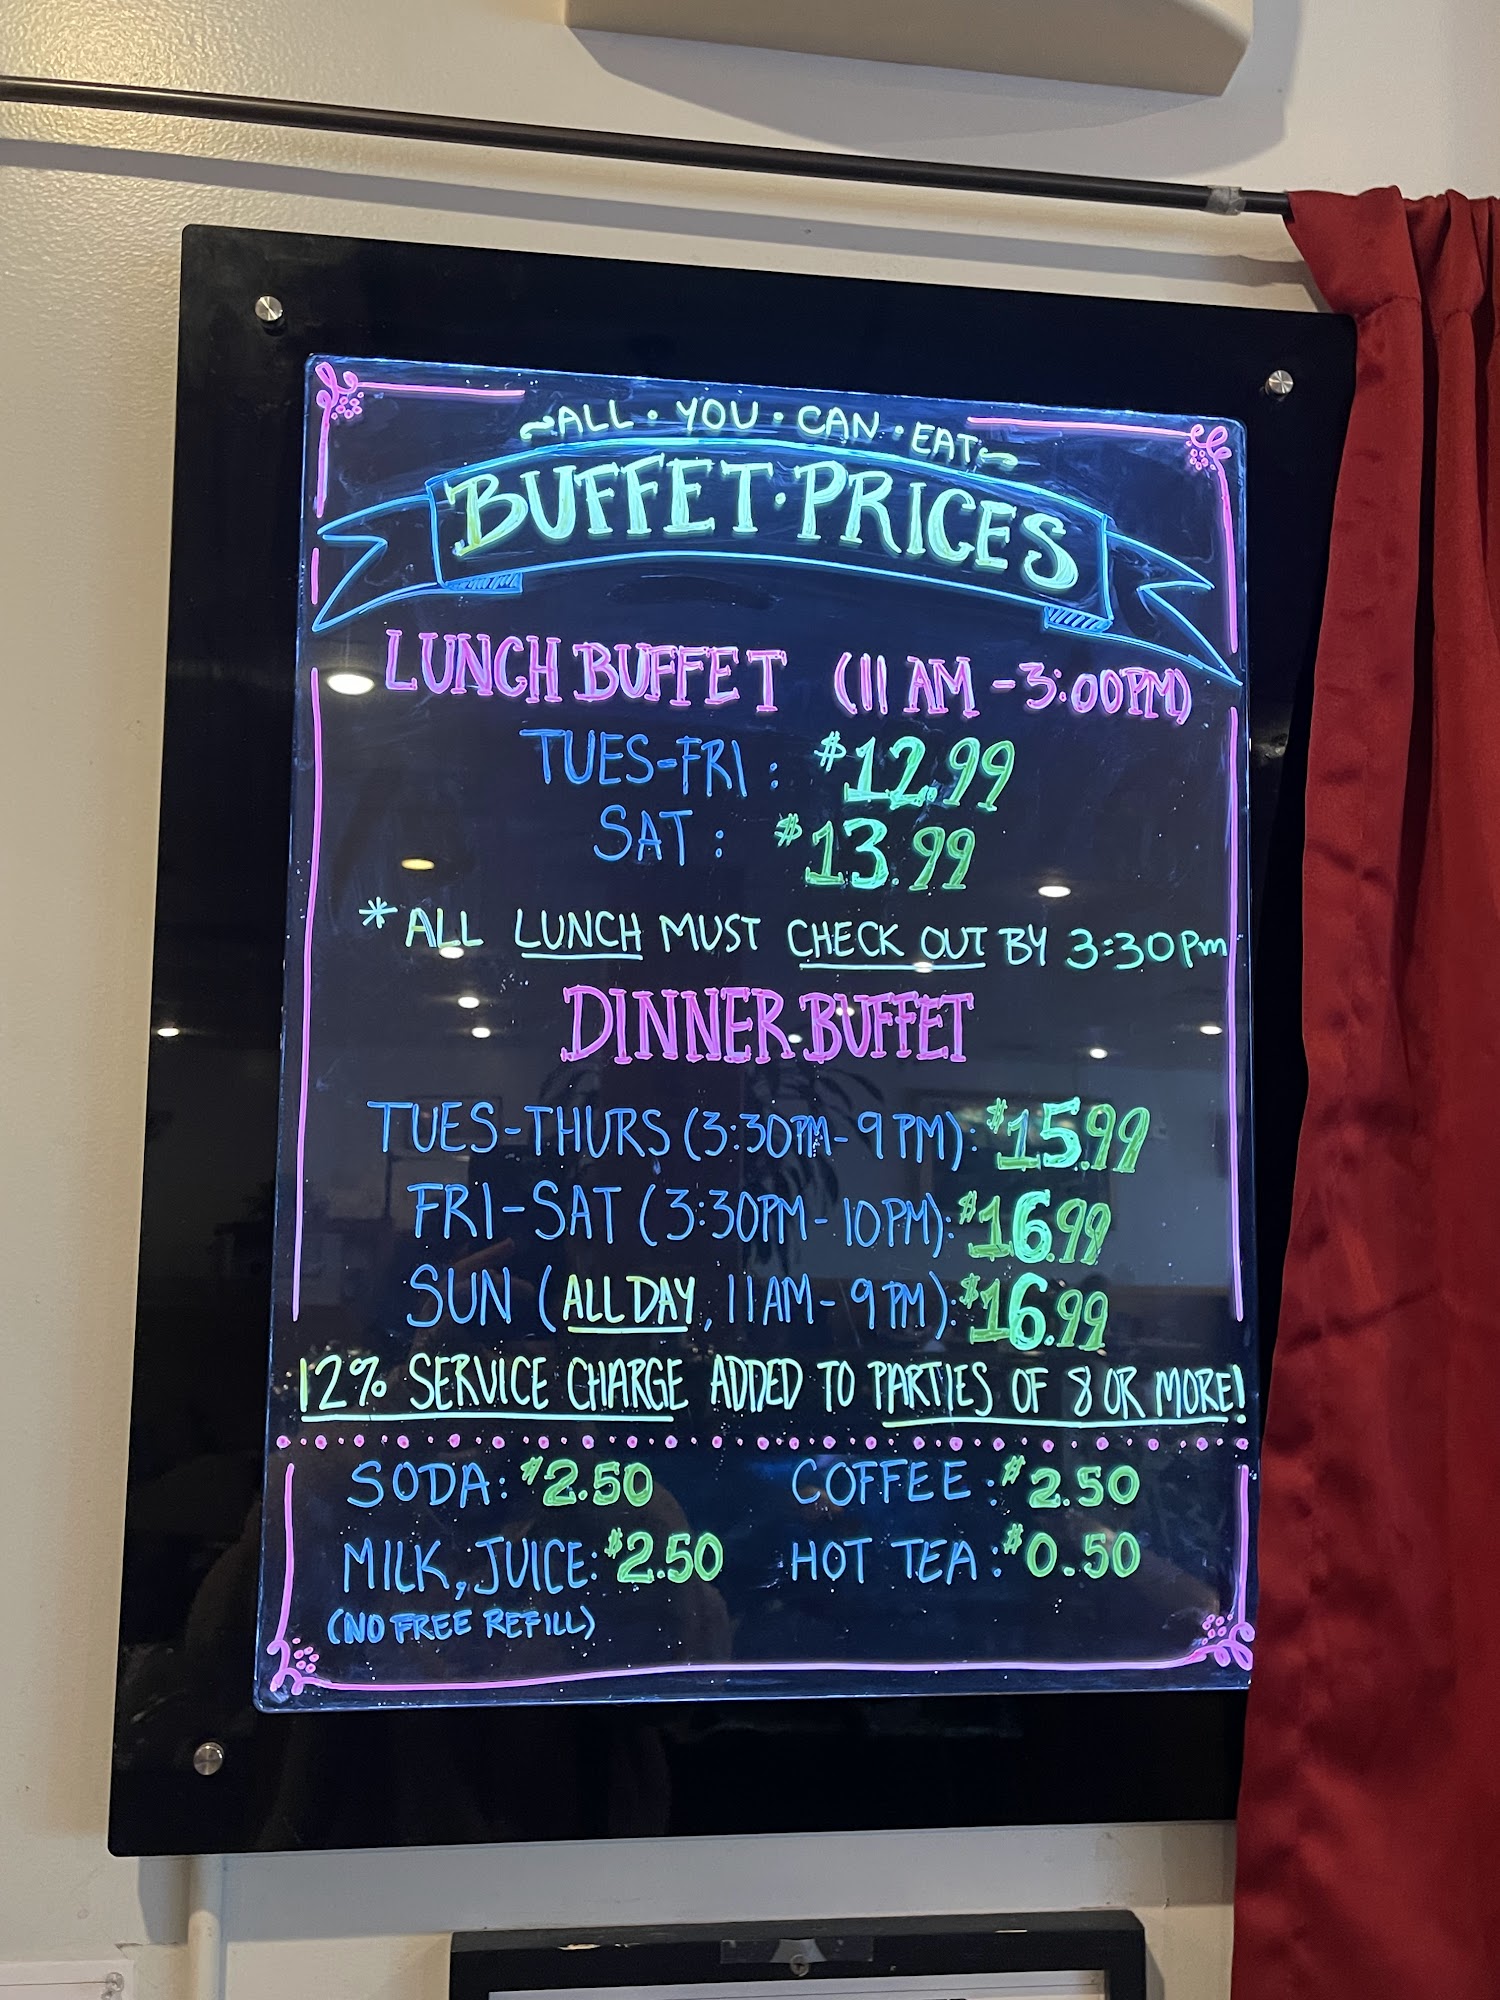 ~ALL • YOU • CAN • EAT~
BUFFET • PRICES
LUNCH BUFFET (11 AM - 3:00PM)
TUES-FRI : $12.99
SAT : $13.99
*ALL LUNCH MUST CHECK OUT BY 3:30pm
DINNER BUFFET
TUES-THURS (3:30PM-9PM): $15.99
FRI-SAT (3:30PM-10PM): $16.99
SUN (ALL DAY, 11AM-9PM): $16.99
12% SERVICE CHARGE ADDED TO PARTIES OF 8 OR MORE!
SODA: $2.50 COFFEE: $2.50
MILK, JUICE: $2.50 HOT TEA: $0.50
(NO FREE REFILL)